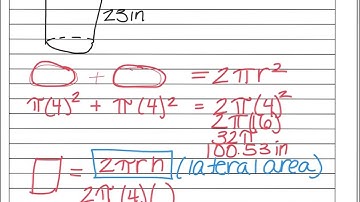 23in
+ = 2πr²
π(4)² + π(4)² = 2π(4)²
2π(16)
32π
100.53in
= 2πrh (lateral area)
2π(4)( )